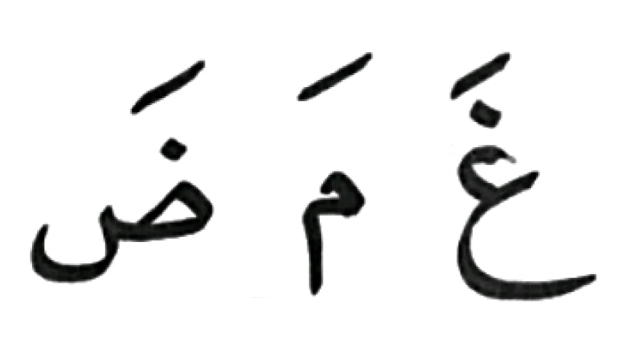 غَ مَ ضَ